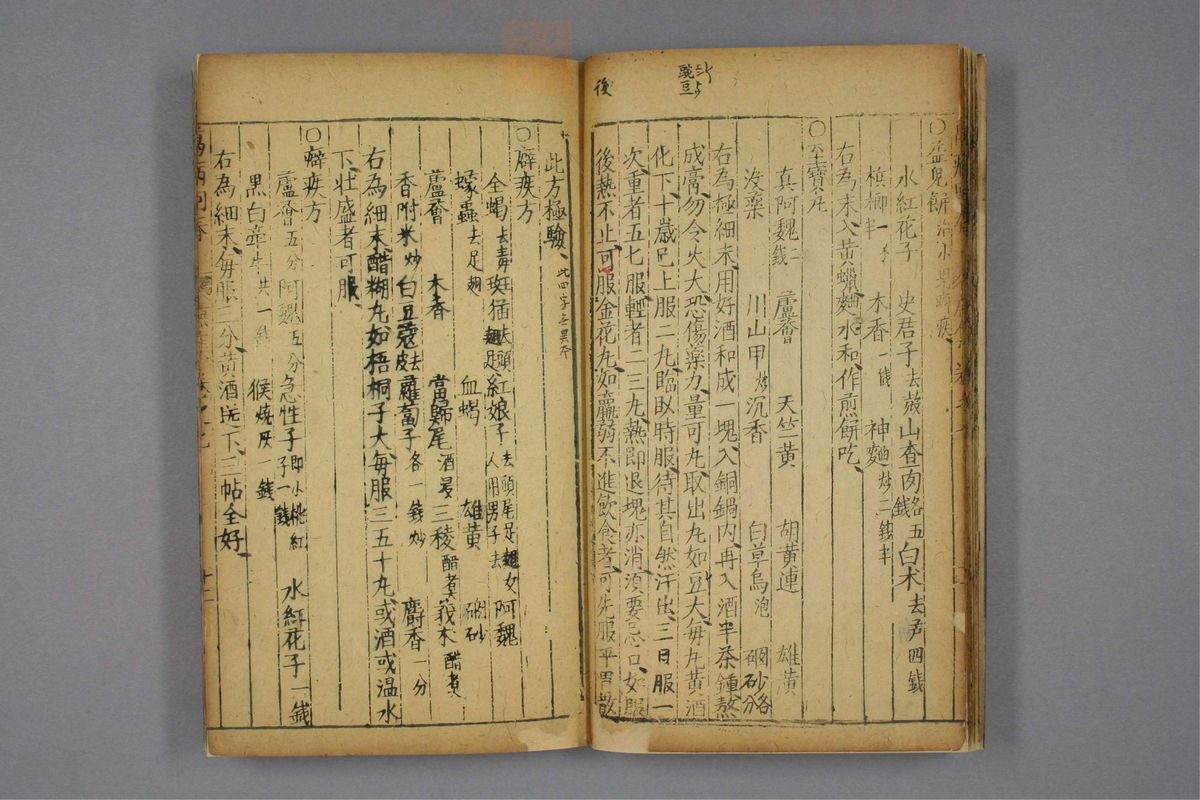 ○ 餅 治小兒癖疾
水紅花子 史君子去殼 山查肉各五錢 白术去芦四錢
檳榔半 木香一錢 神麯炒二錢半
右為末入黃蠟麵水和作煎餅吃
○至寶丸
真阿魏二錢 蘆薈 天竺黃 胡黃連 雄黃
沒藥 川山甲炒 沉香 白草烏泡 硇砂各 分
右為極細末用好酒和成一塊入銅鍋内再入酒半茶鍾熬
成膏勿令火大恐傷藥力量可丸取出丸如豆大每丸黃酒
化下十歲已上服二丸臨臥時服待其自然汗出三日服一
次重者五七服輕者二三丸熱即退塊亦消須要忌口如服
後熱不止可服金花丸如羸弱不進飲食者可先服平胃散
後
豌豆
此方極驗 此四字 異本
○癖疾方
全蝎去毒 斑猫去頭翅足 紅娘子去頭尾足翅女人用男子去 阿魏
蝱蟲去足翅 血蝎 雄黃 硇砂
蘆薈 木香 當歸尾酒浸 三稜醋煮 莪术醋煮
香附米炒 白豆蔻去皮 蘿蔔子各一錢炒 麝香一分
右為細末醋糊丸如梧桐子大每服三五十丸或酒或温水
下壯盛者可服
○癖疾方
蘆薈五分 阿魏五分 急性子即小桃紅子一錢 水紅花子一錢
黑白牽牛共一錢 猴 燒灰一錢
右為細末每服三分黃酒送下三帖全好
十二